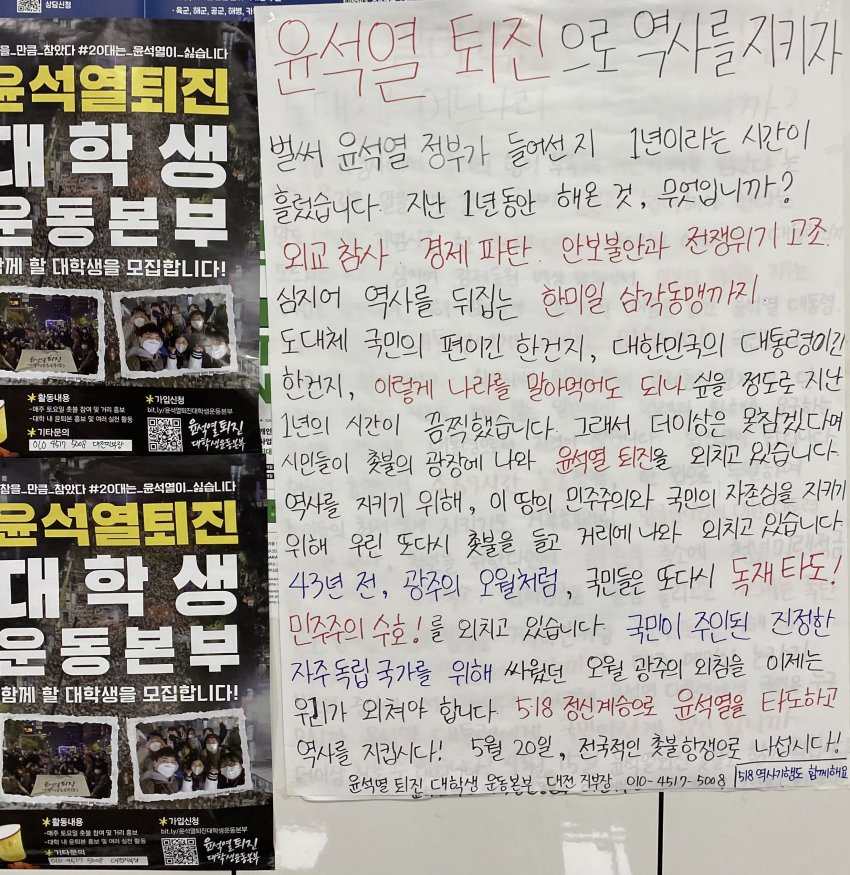 상담신청
· 육군, 해군, 공군, 해병, 카
을_만큼_참았다 #20대는_윤석열이_싫습니다
윤석열퇴진
대학생
운동본부
함께 할 대학생을 모집합니다!
윤석열퇴진
*활동내용
-매주 토요일 촛불 참여 및 거리 홍보
-대학 내 운퇴본 홍보 및 여러 실천 활동
*기타문의
010 4517 5008 대전지부장
*가입신청
bit.ly/윤석열퇴진대학생운동본부
윤석열퇴진
대학생운동본부
참을_만큼_참았다 #20대는_윤석열이_싫습니다
윤석열퇴진
대학생
운동본부
함께 할 대학생을 모집합니다!
윤석열퇴진
*활동내용
-매주 토요일 촛불 참여 및 거리 홍보
-대학 내 운퇴본 홍보 및 여러 실천 활동
*기타문의
010 4517 5008 대전지부장
*가입신청
bit.ly/윤석열퇴진대학생운동본부
윤석열퇴진
대학생운동본부
윤석열 퇴진으로 역사를 지키자
벌써 윤석열 정부가 들어선지 1년이라는 시간이
흘렀습니다. 지난 1년동안 해온 것, 무엇입니까?
외교 참사. 경제 파탄. 안보불안과 전쟁위기 고조.
심지어 역사를 뒤집는 한미일 삼각동맹까지.
도대체 국민의 편이긴 한건지, 대한민국의 대통령이긴
한건지, 이렇게 나라를 말아먹어도 되나 싶을 정도로 지난
1년의 시간이 끔찍했습니다. 그래서 더이상은 못참겠다며
시민들이 촛불의 광장에 나와 윤석열 퇴진을 외치고 있습니다.
역사를 지키기 위해, 이 땅의 민주주의와 국민의 자존심을 지키기
위해 우린 또다시 촛불을 들고 거리에 나와 외치고 있습니다.
43년 전, 광주의 오월처럼, 국민들은 또다시 독재 타도!
민주주의 수호!를 외치고 있습니다. 국민이 주인된 진정한
자주 독립 국가를 위해 싸웠던 오월 광주의 외침을 이제는
우리가 외쳐야 합니다. 518 정신계승으로 윤석열을 타도하고
역사를 지킵시다! 5월 20일, 전국적인 촛불항쟁으로 나섭시다!
윤석열 퇴진 대학생 운동본부 대전 지부장. 010-4517-5008
518 역사기행도 함께해요